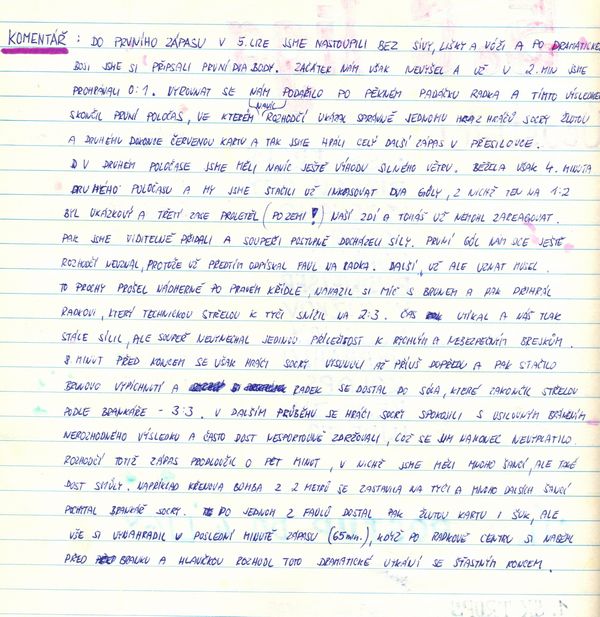 KOMENTÁŘ: DO PRVNÍHO ZÁPASU V 5. LIZE JSME NASTOUPILI BEZ SÍVY, LIŠKY A VÓŽI A PO DRAMATICKÉM
BOJI JSME SI PŘIPSALI PRVNÍ DVA BODY. ZAČÁTEK NÁM VŠAK NEVYŠEL A UŽ V 2. MIN JSME
PROHRÁVALI 0:1. VYROVNAT SE NÁM PODAŘILO PO PĚKNÉM PADÁČKU RADKA A TÍMTO VÝSLEDKEM
SKONČIL PRVNÍ POLOČAS, VE KTERÉM NAVÍC ROZHODČÍ UKÁZAL SPRÁVNĚ JEDNOMU HRÁČŮ SOCKY ŽLUTOU
A DRUHÉMU DOKONCE ČERVENOU KARTU A TAK JSME HRÁLI CELÝ DALŠÍ ZÁPAS V PŘESILOVCE.
V DRUHÉM POLOČASE JSME MĚLI NAVÍC JEŠTĚ VÝHODU SILNÉHO VĚTRU. BĚŽELA VŠAK 4. MINUTA
DRUHÉHO POLOČASU A MY JSME STAČILI UŽ INKASOVAT DVA GÓLY, Z NICHŽ TEN NA 1:2
BYL UKÁZKOVÝ A TŘETÍ ZASE PROLETĚL (PO ZEMI!) NAŠÍ ZDÍ A TOMÁŠ UŽ NEMOHL ZAREAGOVAT.
PAK JSME VIDITELNĚ PŘIDALI A SOUPEŘI POSTUPNĚ DOCHÁZELI SÍLY. PRVNÍ GÓL NÁM SICE JEŠTĚ
ROZHODČÍ NEUZNAL, PROTOŽE UŽ PŘEDTÍM ODPÍSKAL FAUL NA RADKA. DALŠÍ UŽ ALE UZNAT MUSEL.
TO PROCHY PROŠEL NÁDHERNĚ PO PRAVÉM KŘÍDLE, NARAZIL SI MÍČ S BRUNEM A PAK PŘIHRÁL
RADKOVI, KTERÝ TECHNICKOU STŘELOU K TYČI SNÍŽIL NA 2:3. ČAS UTÍKAL A NÁŠ TLAK
STÁLE SÍLIL, ALE SOUPEŘ NEVYNECHAL JEDINOU PŘÍLEŽITOST K RYCHLÝM A NEBEZPEČNÝM BREJKŮM.
8 MINUT PŘED KONCEM SE VŠAK HRÁČI SOCKY VYSUNULI AŽ PŘÍLIŠ DOPŘEDU A PAK STAČILO
BRUNOVO VYPÍCHNUTÍ A RADEK SE DOSTAL DO SÓLA, KTERÉ ZAKONČIL STŘELOU
PODLE BRANKÁŘE - 3:3. V DALŠÍM PRŮBĚHU SE HRÁČI SOCKY SPOKOJILI S USILOVNÝM BRÁNĚNÍM
NEROZHODNÉHO VÝSLEDKU A ČASTO DOST NESPORTOVNĚ ZDRŽOVALI, COŽ SE JIM NAKONEC NEVYPLATILO.
ROZHODČÍ TOTIŽ ZÁPAS PRODLOUŽIL O PĚT MINUT, V NICHŽ JSME MĚLI MNOHO ŠANCÍ, ALE TAKÉ
DOST SMŮLY. NAPŘÍKLAD KŘENOVA BOMBA Z 2 METRŮ SE ZASTAVILA NA TYČI A MNOHO DALŠÍCH ŠANCÍ
POCHYTAL BRANKÁŘ SOCKY. PO JEDNOM Z FAULŮ DOSTAL PAK ŽLUTOU KARTU I ŠUK, ALE
VŠE SI VYNAHRADIL V POSLEDNÍ MINUTĚ ZÁPASU (65 MIN.), KDYŽ PO RADKOVĚ CENTRU SI NABĚHL
PŘED BRANKU A HLAVIČKOU ROZHODL TOTO DRAMATICKÉ UTKÁNÍ SE ŠŤASTNÝM KONCEM.